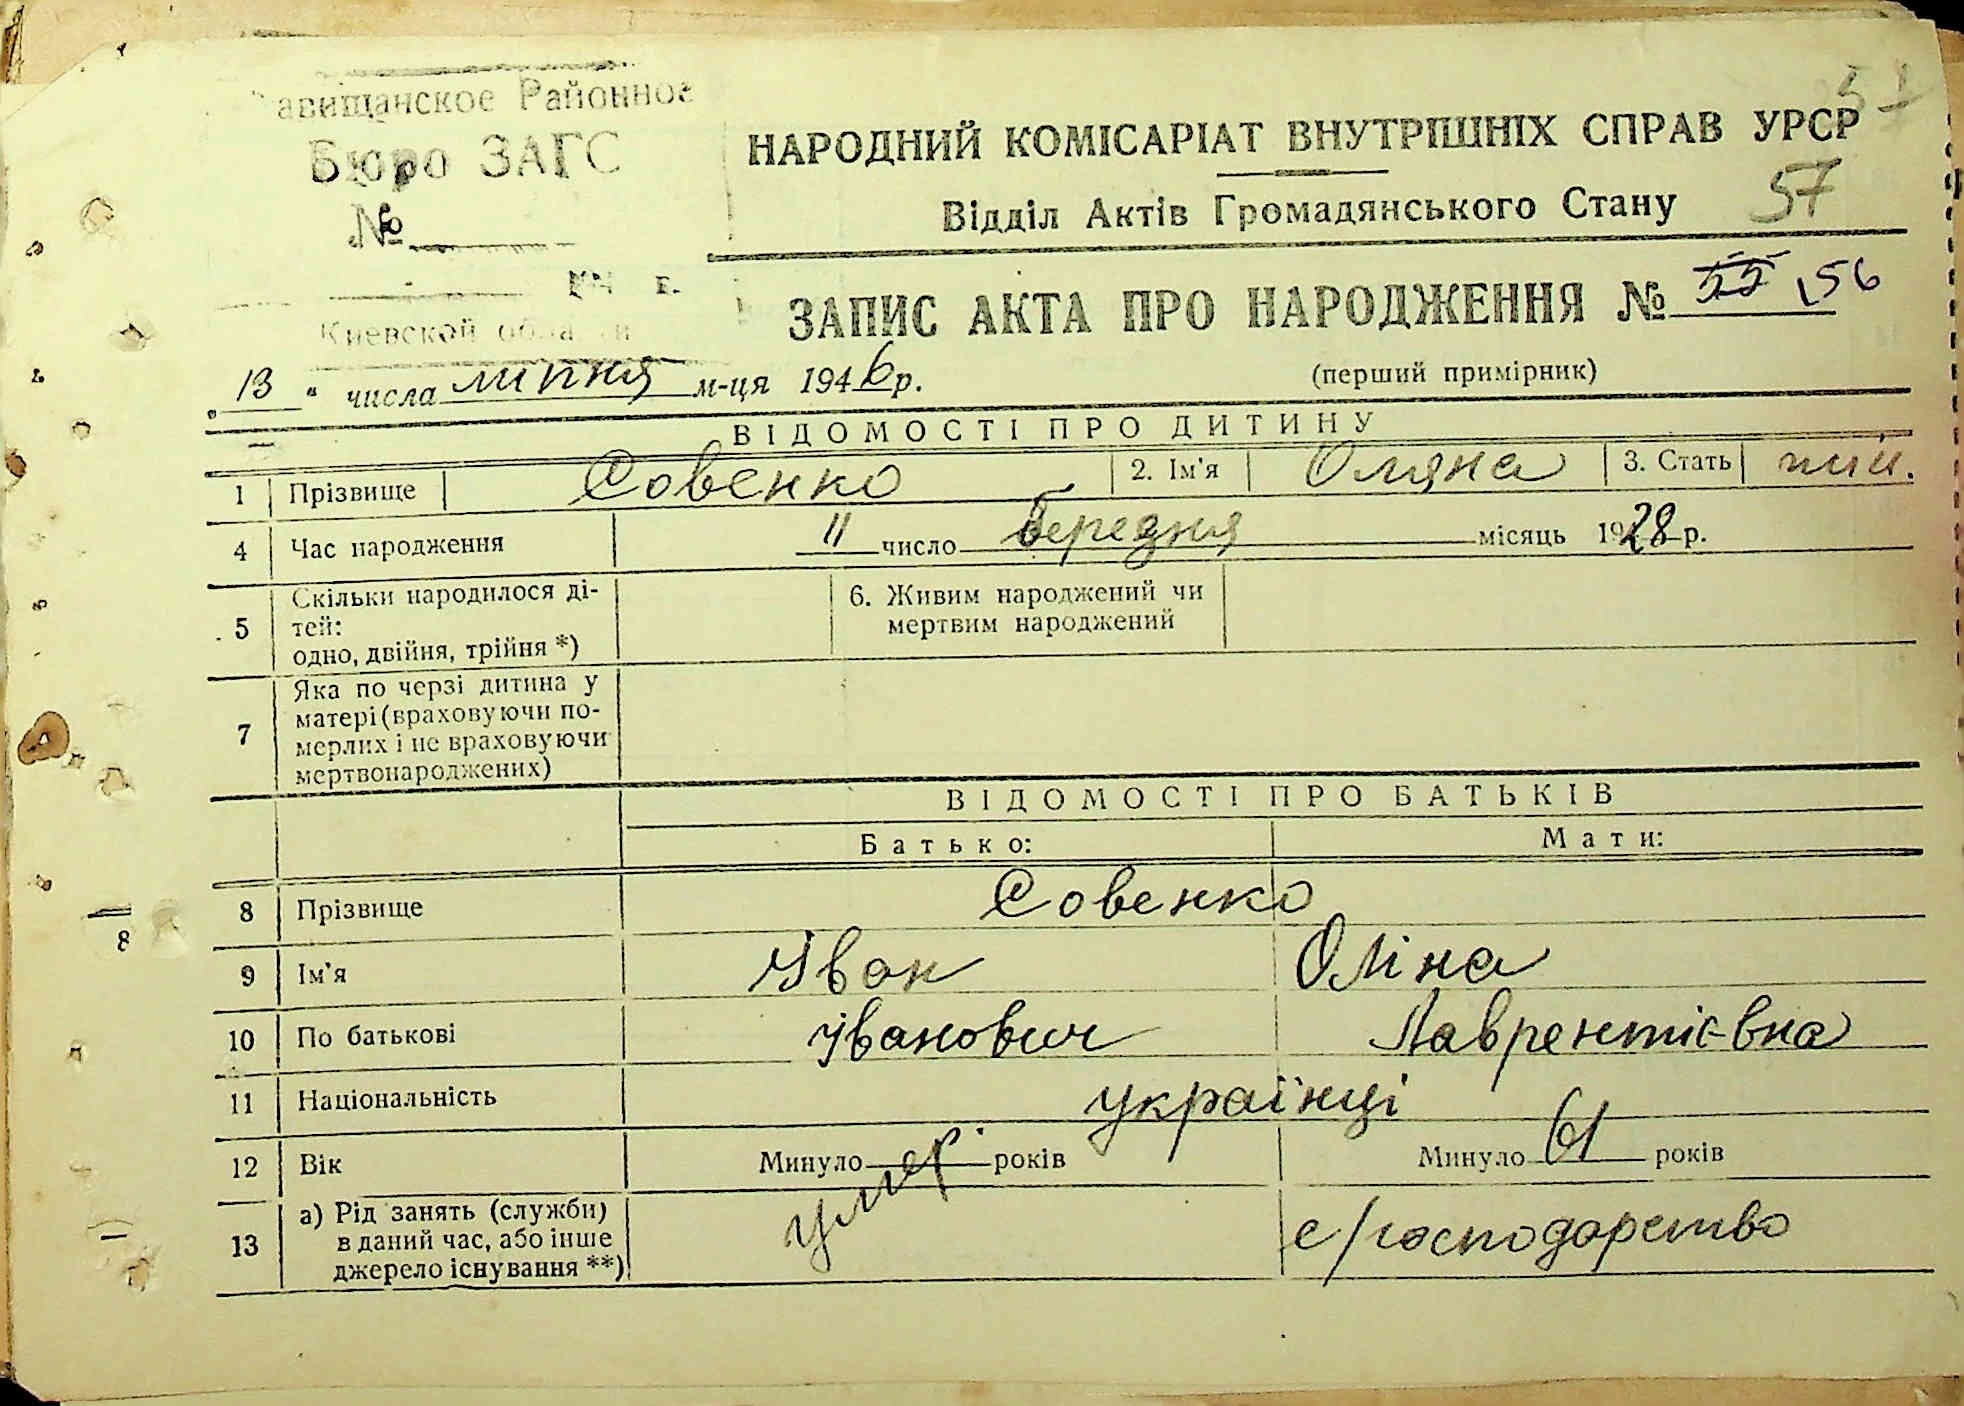 авищанское Районное
Бюро ЗАГС
№
Киевской области
57
НАРОДНИЙ КОМІСАРІАТ ВНУТРІШНІХ СПРАВ УРСР
Відділ Актів Громадянського Стану 57
ЗАПИС АКТА ПРО НАРОДЖЕННЯ № 55 56
(перший примірник)
„13“ числа липня м-ця 1946 р.
ВІДОМОСТІ ПРО ДИТИНУ
1 Прізвище Совенко 2. Ім'я Оляна 3. Стать жін.
4 Час народження 11 число березня місяць 1928 р.
5 Скільки народилося ді-
тей:
одно, двійня, трійня *)
6. Живим народжений чи
мертвим народжений
7 Яка по черзі дитина у
матері (враховуючи по-
мерлих і не враховуючи
мертвонароджених)
ВІДОМОСТІ ПРО БАТЬКІВ
Батько: Мати:
8 Прізвище Совенко
9 Ім'я Іван Оліна
10 По батькові Іванович Лаврентієвна
11 Національність українці
12 Вік Минуло умер років Минуло 61 років
13 а) Рід занять (служби)
в даний час, або інше
джерело існування **)
с/господарство
8